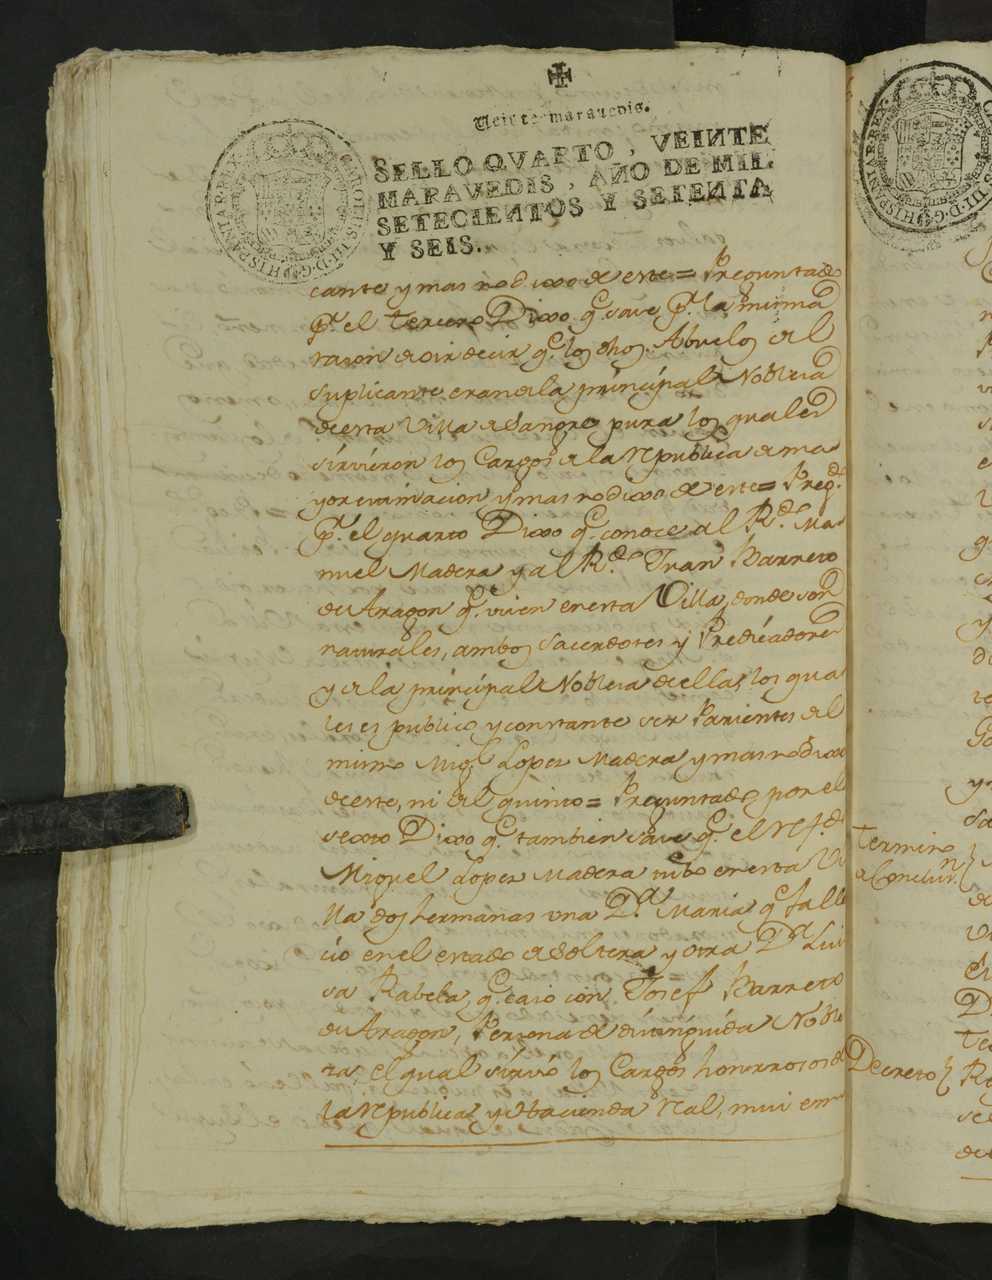 Veinte maravedis.
SELLO QVARTO, VEINTE
MARAVEDIS, AÑO DE MIL
SETECIENTOS Y SETENTA
Y SEIS.
CAROLUS III D G HISPANIAR REX
cante y mas no dixo de este = Preguntado
pr. el tercero Dixo q. save pr. la misma
razon de oir decir q. los dhos. Abuelos del
suplicante eran de la principal Nobleza
de esta Villa de Sangre pura los quales
sirvieron los Cargos de la republica de ma
yor estimacion y mas no dixo de este = Pregdo.
pr. el quarto Dixo q. conoce al Rdo. Ma
nuel Madera y al Rdo. Fran Barrero
de Aragon q. viven en esta Villa, donde son
naturales, ambos Sacerdotes y Predicadores
y de la principal Nobleza de ella, los qua
les es publico y constante ser Parientes del
mismo Migl. Lopez Madera y mas no dixo
de este, ni del quinto = Preguntado por el
sexto Dixo q. tambien save q. el refdo.
Miguel Lopez Madera tubo en esta Vi
lla dos hermanas una Da. Maria q. falle
cio en el estado de Soltera y otra Da. Lui
sa Rabela, q. caso con Josef Barrero
de Aragon, Persona de distinguida Noble
za, el qual sirvió los Cargos honrrosos de
la republica y Hacienda real, mui em
termino
a Concluir.
Decreto